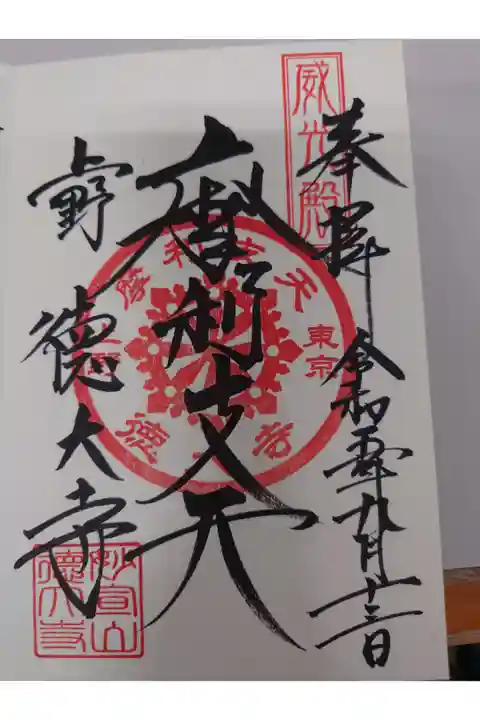 奉拝 令和五年九月十三日
威光殿
摩利支天
上野 徳大寺
摩利支天
東京
上野
徳大寺
妙宣山
徳大寺